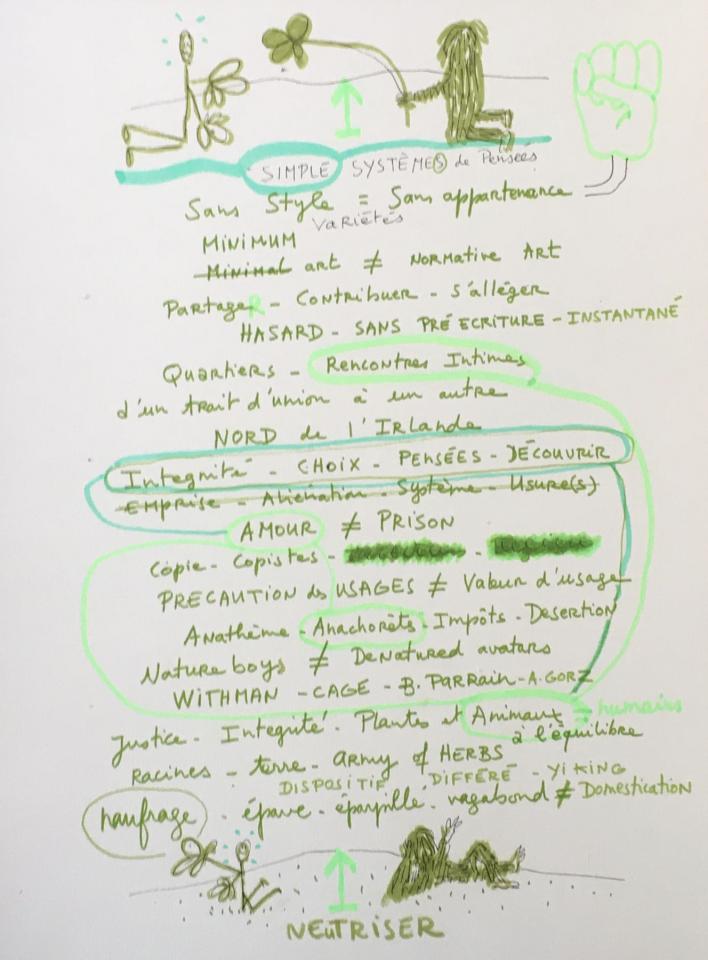 SIMPLE SYSTÈMES de Pensées
Sans Style = Sans appartenance
VARIÉTÉS
MINIMUM
Minimal art ≠ NORMATIVE ART
PartageR - Contribuer - s'alléger
HASARD - SANS PRÉ ECRITURE - INSTANTANÉ
Quartiers - Rencontres Intimes
d'un trait d'union à un autre
NORD de l'Irlande
Integrité - CHOIX - PENSÉES - DÉCOUVRIR
EMPRISE - Aliénation - Système - Usure(s)
AMOUR ≠ PRISON
Copie - Copistes -
PRECAUTION des USAGES ≠ Valeur d'usage
Anathème - Anachorèts - Impôts - Desertion
Nature boys ≠ DENATURED avatars
WITHMAN - CAGE - B. PARRAIN - A. GORZ
Justice - Integrité - Plantes et Animaux = humains
à l'équilibre
Racines - terre - ARMY of HERBS
DISPOSITIF DIFFÉRÉ - YI KING
naufrage - épave - éparpillé - vagabond ≠ Domestication
NEUTRISER